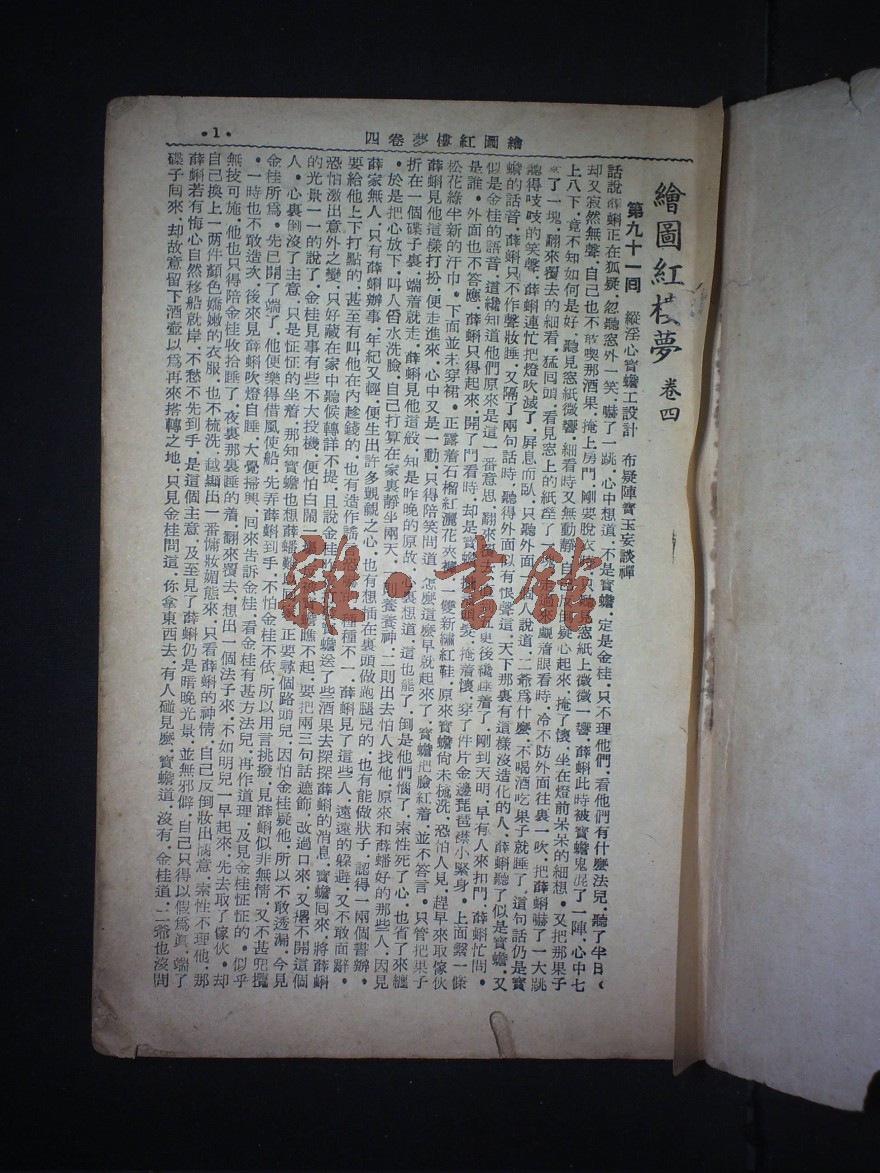 繪圖紅樓夢卷四
•1•
繪圖紅樓夢 卷四
第九十一囘 縱淫心寶蟾工設計 布疑陣寶玉妄談禪
話說薛蝌正在狐疑．忽聽窓外一笑．嚇了一跳．心中想道．不是寶蟾．定是金桂．只不理他們．看他們有什麼法兒．聽了半日．
却又寂然無聲．自己也不敢喫那酒果．掩上房門．剛要脫衣時．只聽見窓紙上微微一響．薛蝌此時被寶蟾鬼混了一陣．心中七
上八下．竟不知如何是好．聽見窓紙微響．細看時又無動靜．自己反倒疑心起來．掩了懷．坐在燈前呆呆的細想．又把那果子
拿了一塊．翻來覆去的細看．猛囘頭．看見窓上的紙溼了一塊．走過來覷着眼看時．冷不防外面往裏一吹．把薛蝌嚇了一大跳
聽得吱吱的笑聲．薛蝌連忙把燈吹滅了．屏息而臥．只聽外面一個人說道．二爺爲什麼不喝酒吃果子就睡了．這句話仍是寶
蟾的話音．薛蝌只不作聲妝睡．又隔了兩句話時．聽得外面似有恨聲道．天下那裏有這樣沒造化的人．薛蝌聽了似是寶蟾．又
似是金桂的語音．這纔知道他們原來是這一番意思．翻來覆去．直到五更後纔睡着了．剛到天明．早有人來扣門．薛蝌忙問．
是誰．外面也不答應．薛蝌只得起來．開了門看時．却是寶蟾．攏着頭髮．掩着懷．穿了件片金邊琵琶襟小緊身．上面繫一條
松花綠半新的汗巾．下面並未穿裙．正露着石榴紅灑花夾褲．一雙新繡紅鞋．原來寶蟾尙未梳洗．恐怕人見．趕早來取傢伙
薛蝌見他這樣打扮．便走進來．心中又是一動．只得陪笑問道．怎麼這麼早就起來了．寶蟾把臉紅着．並不答言．只管把果子
折在一個碟子裏．端着就走．薛蝌見他這般．知是昨晚的原故．心裏想道．這也罷了．倒是他們惱了．索性死了心．也省了來纏
．於是把心放下．叫人舀水洗臉．自己打算在家裏靜坐兩天．一則養養神．二則出去怕人找他．原來和薛蟠好的那些人．因見
薛家無人．只有薛蝌辦事．年紀又輕．便生出許多覬覦之心．也有想插在裏頭做跑腿兒的．也有能做狀子．認得一兩個書辦．
要給他上下打點的．甚至有叫他在內趁錢的．也有造作謠言恐嚇的．種種不一．薛蝌見了這些人．遠遠的躱避．又不敢面辭．
恐怕激出意外之變．只好藏在家中聽候轉詳不提．且說金桂昨夜打發寶蟾送了些酒果去探探薛蝌的消息．寶蟾囘來．將薛蝌
的光景一一的說了．金桂見事有些不大投機．便怕白鬧一場．反被寶蟾瞧不起．要把兩三句話遮飾．改過口來．又撂不開這個
人．心裏倒沒了主意．只是怔怔的坐着．那知寶蟾也想薛蟠難以囘家．正要尋個路頭兒．因怕金桂疑他．所以不敢透漏．今見
金桂所爲．先已開了端了．他便樂得借風使船．先弄薛蝌到手．不怕金桂不依．所以用言挑撥．見薛蝌似非無情．又不甚兜攬
．一時也不敢造次．後來見薛蝌吹燈自睡．大覺掃興．囘來告訴金桂．看金桂有甚方法兒．再作道理．及見金桂怔怔的．似乎
無技可施．他也只得陪金桂收拾睡了．夜裏那裏睡的着．翻來覆去．想出一個法子來．不如明兒一早起來．先去取了傢伙．却
自己換上一兩件顏色嬌嫩的衣服．也不梳洗．越顯出一番慵妝媚態來．只看薛蝌的神情．自己反倒妝出惱意．索性不理他．那
薛蝌若有悔心自然移船就岸．不愁不先到手．是這個主意．及至見了薛蝌仍是昨晚光景．並無邪僻．自己只得以假爲眞．端了
碟子囘來．却故意留下酒壺以爲再來搭轉之地．只見金桂問道．你拿東西去．有人碰見麼．寶蟾道．沒有．金桂道．二爺也沒問
雜•書館